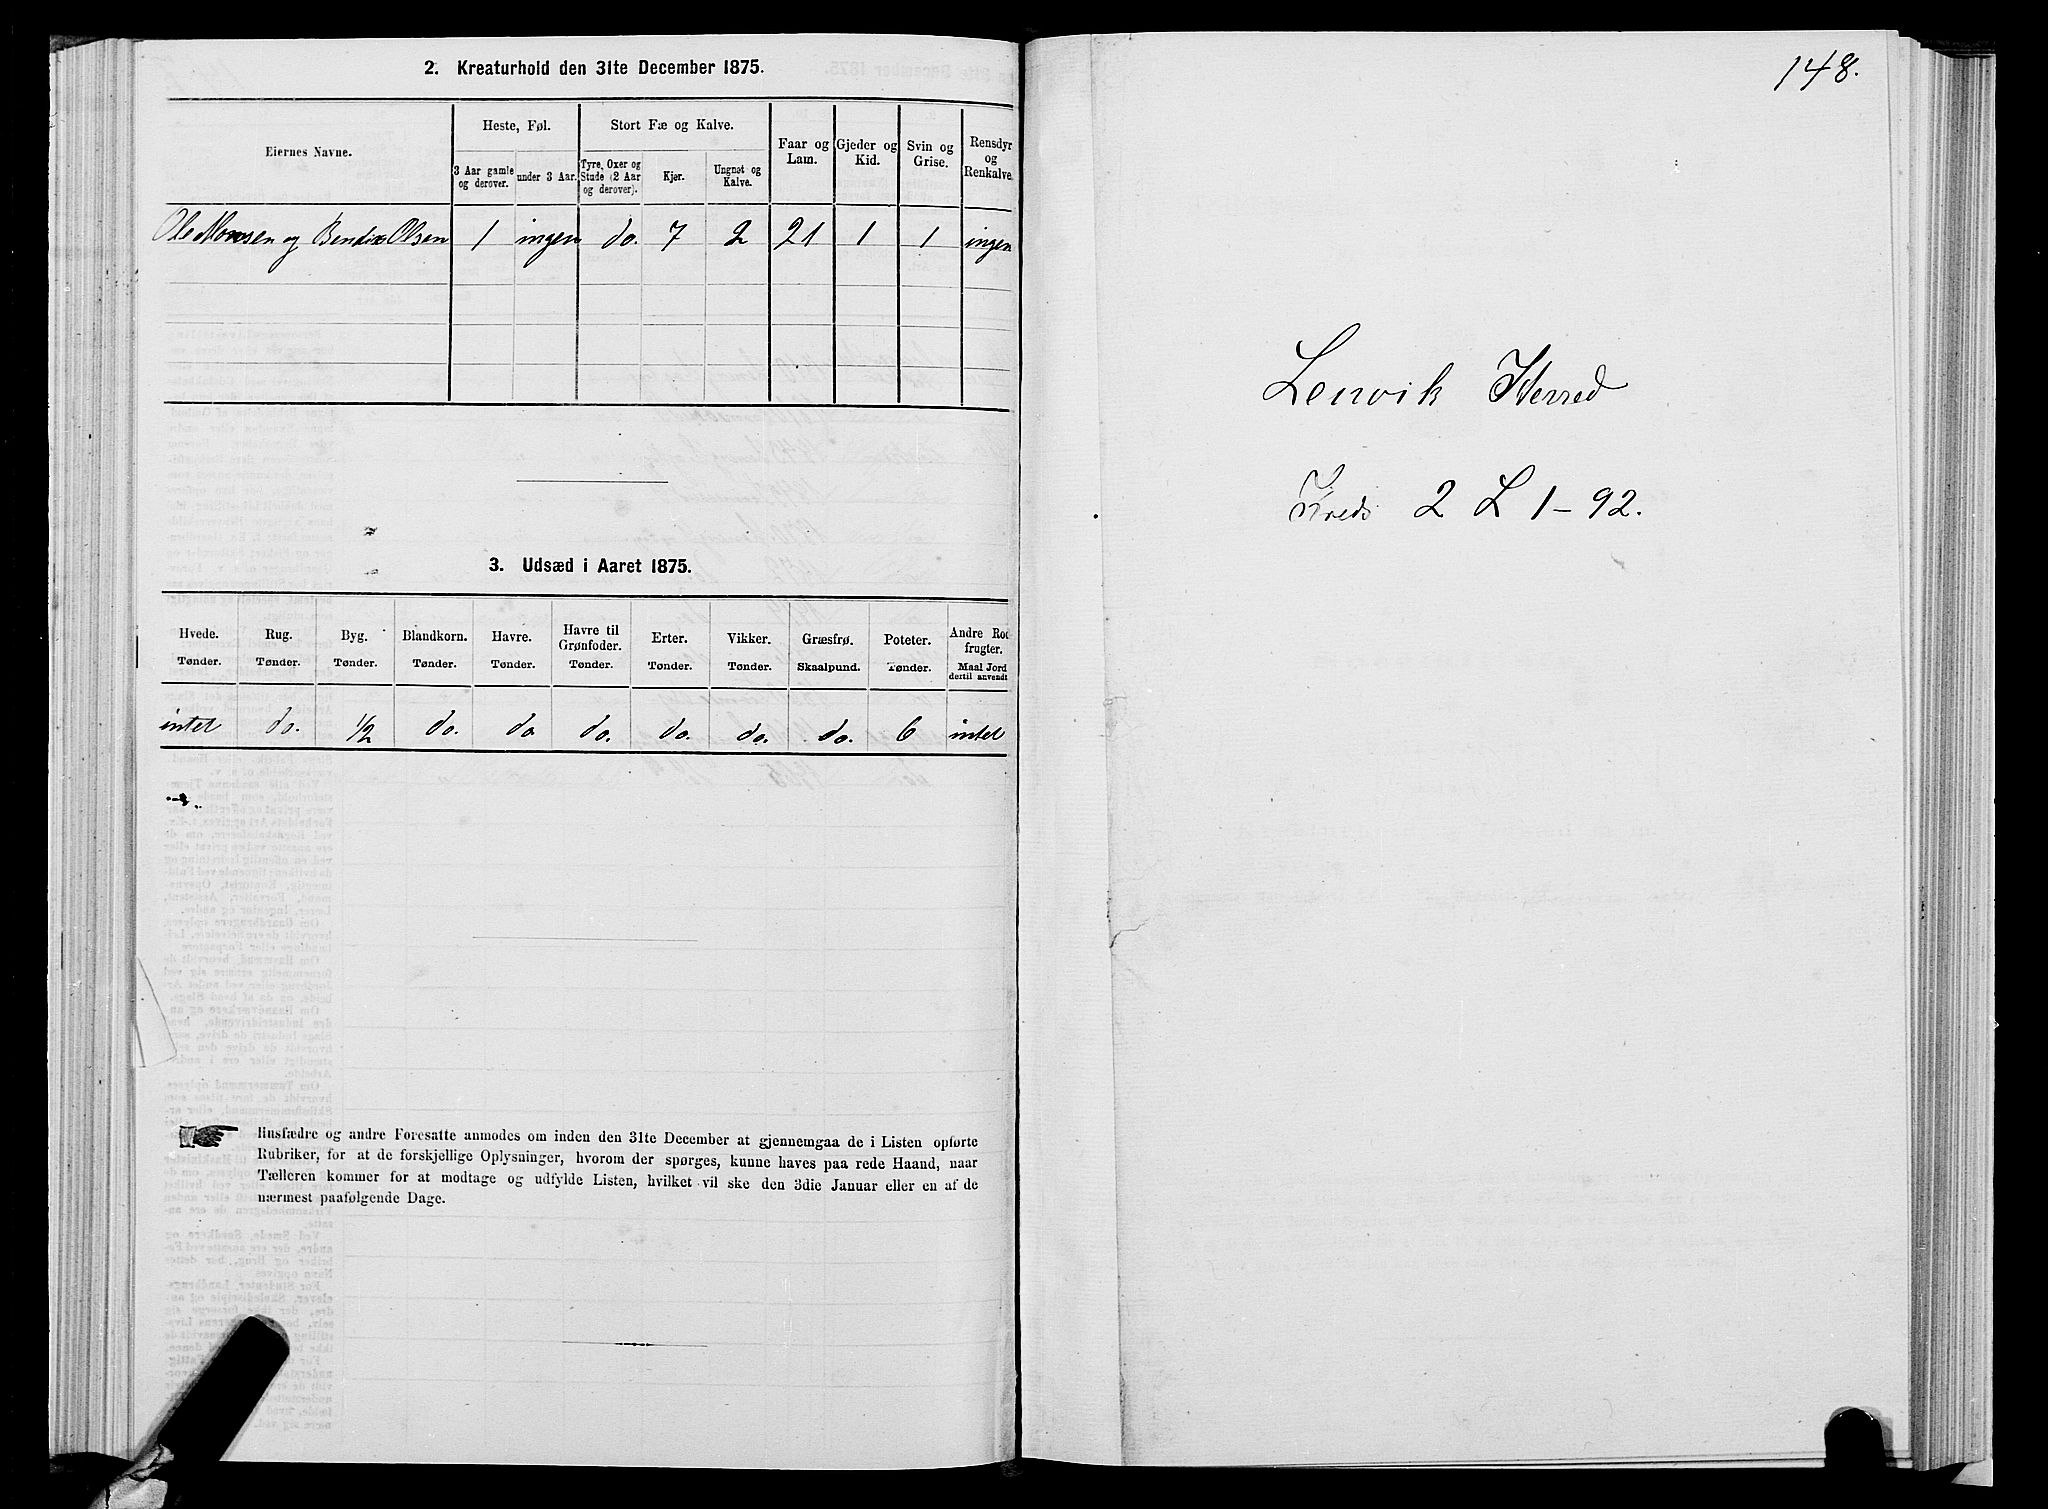 2. Kreaturhold den 31te December 1875.
Eiernes Navne.
Heste, Føl.
3 Aar gamle og derover.
under 3 Aar.
Stort Fæ og Kalve.
Tyre, Oxer og Stude (2 Aar og derover).
Kjør.
Ungnøt og Kalve.
Faar og Lam.
Gjeder og Kid.
Svin og Grise.
Rensdyr og Renkalve.
Ole Monsen og Bendix Olsen 1 ingen do. 7 2 21 1 1 ingen
3. Udsæd i Aaret 1875.
Hvede. Rug. Byg. Blandkorn. Havre. Havre til Grønfoder. Erter. Vikker. Græsfrø. Poteter. Andre Rodfrugter.
Tønder. Tønder. Tønder. Tønder. Tønder. Tønder. Tønder. Tønder. Skaalpund. Tønder. Maal Jord dertil anvendt
intet do. 1/2 do. do do. do. do. do. 6 intet
Husfædre og andre Foresatte anmodes om inden den 31te December at gjennemgaa de i Listen opførte
Rubriker, for at de forskjellige Oplysninger, hvorom der spørges, kunne haves paa rede Haand, naar
Tælleren kommer for at modtage og udfylde Listen, hvilket vil ske den 3die Januar eller en af de
nærmest paafølgende Dage.
148.
Lenvik Herred
Kreds 2 L 1-92.